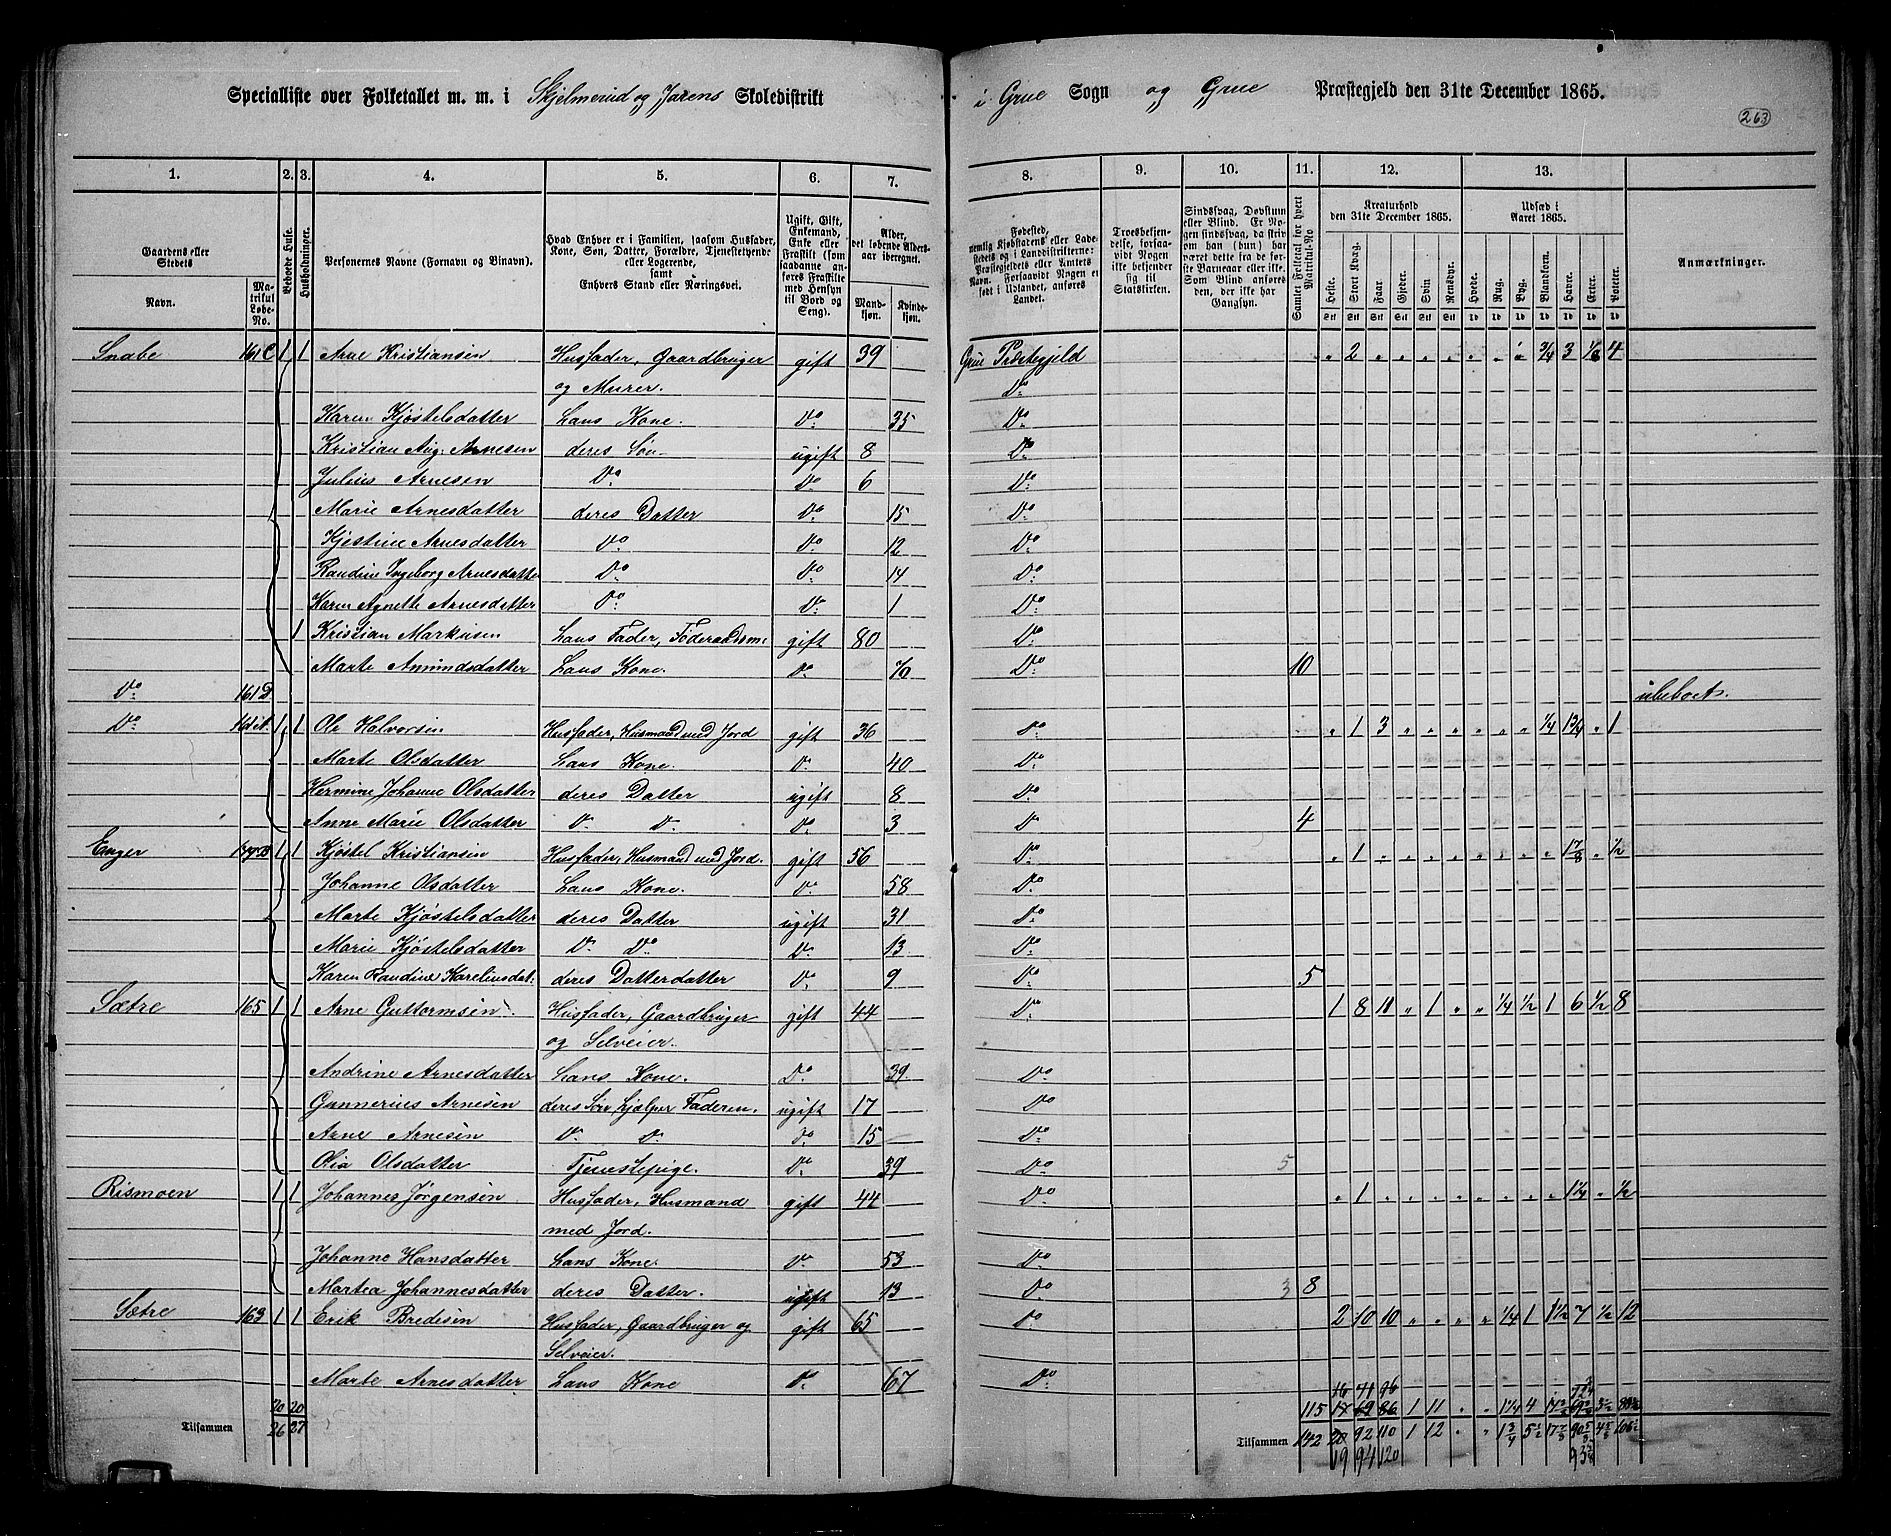 Specialliste over Folketallet m. m. i Skjelmerud og Jarens Skoledistrikt
i Grue Sogn og Grue Præstegjeld den 31te December 1865.
263
1. 2. 3. 4. 5. 6. 7. 8. 9. 10. 11. 12. 13.
Gaardens eller Stedets
Navn.
Matrikul Løbe-No.
Beboede Huse.
Husholdninger.
Personernes Navne (Fornavn og Binavn).
Hvad Enhver er i Familien, saasom Husfader, Kone, Søn, Datter, Forældre, Tjenestetyende eller Logerende,
samt
Enhvers Stand eller Næringsvei.
Ugift, Gift, Enkemand, Enke eller Fraskilt (som saadanne anføres Fraskilte med Hensyn til Bord og Seng).
Alder, det løbende Aldersaar iberegnet.
Mandkjøn.
Kvindekjøn.
Fødested, nemlig Kjøbstadens eller Ladestedets og i Landdistrikterne: Præstegjeldets eller Amtets Navn. Forsaavidt Nogen er født i Udlandet, anføres Landet.
Troesbekjendelse, forsaavidt Nogen ikke bekjender sig til Statskirken.
Sindssvag, Døvstum eller Blind. Er Nogen sindssvag, da skriv om han (hun) har været dette fra de første Barneaar eller ikke. Som Blind anføres den, der ikke har Gangsyn.
Samlet Folketal for hvert Matrikul-No
Kreaturhold den 31te December 1865.
Heste. Stort Kvæg. Faar. Gjeder. Svin Rensdyr.
Udsæd i Aaret 1865.
Hvede. Rug. Byg. Blandkorn. Havre. Erter. Poteter.
Anmærkninger.
Snabe 161C 1 1 Arne Kristiansen Husfader, Gaardbruger gift 39 Grue Præstegjeld " 2 " " " " " " " 3/4 3 1/8 4
og Murer. Do
Karen Kjøstelsdatter Hans Kone. Do 35 Do
Kristian Aug. Arnesen deres Søn ugift 8 Do
Julius Arnesen Do Do 6 Do
Marie Arnesdatter deres Datter Do 15 Do
Kjestine Arnesdatter Do Do 12 Do
Randine Ingeborg Arnesdatter Do Do 14 Do
Karen Agnette Arnesdatter Do Do 1 Do
1 Kristian Markusen Hans Fader, Føderaadsm. gift 80 Do
Marte Amundsdatter Hans Kone. Do 70 Do 10
Do 161D ubeboet.
Do 1 1 Ole Halvorsen Husfader, Husmand med Jord gift 36 Do " 1 3 " " " " " " 1/4 1 3/4 " 1
Marte Olsdatter Hans Kone. Do 40 Do
Hermine Johanne Olsdatter deres Datter ugift 8 Do
Anne Marie Olsdatter D. D. Do 3 Do 4
Enger 1 1 Kjøstel Kristiansen Husfader, Husmand med Jord. gift 56 Do " 1 " " " " " " " " 1 7/8 " 1/2
Johanne Olsdatter Hans Kone. Do 58 Do
Marte Kjøstelsdatter deres Datter ugift 31 Do
Marie Kjøstelsdatter D. Do Do 13 Do
Karen Randine Kareliusdat. deres Datterdatter Do 9 Do 5
Sætre 165 1 1 Arne Guttormsen Husfader, Gaardbruger gift 44 Do 1 8 11 " 1 " " 1/4 1/2 1 6 1/2 8
og Selveier.
Andrine Arnesdatter Hans Kone. Do 39 Do
Gunnerius Arnesen deres Søn hjælper Faderen. ugift 17 Do
Arne Arnesen D. D. Do 15 Do
Olia Olsdatter Tjenestepige. Do 39 Do 5
Rismoen 1 1 Johannes Jørgensen Husfader, Husmand gift 44 Do " 1 " " " " " " " " 1 1/4 " 1/2
med Jord.
Johanne Hansdatter Hans Kone. Do 53 Do
Martea Johannesdatter deres Datter. ugift 13 Do 3 8
Sætre 163 1 1 Erik Bredesen Husfader, Gaardbruger og gift 65 Do 2 10 10 " " " " 1/4 1 1 1/2 7 1/2 12
Selveier.
Marte Arnesdatter Hans Kone Do 67 Do
20 20
Tilsammen 26 27
115
Tilsammen 142 92 110 1 12
19 94 120